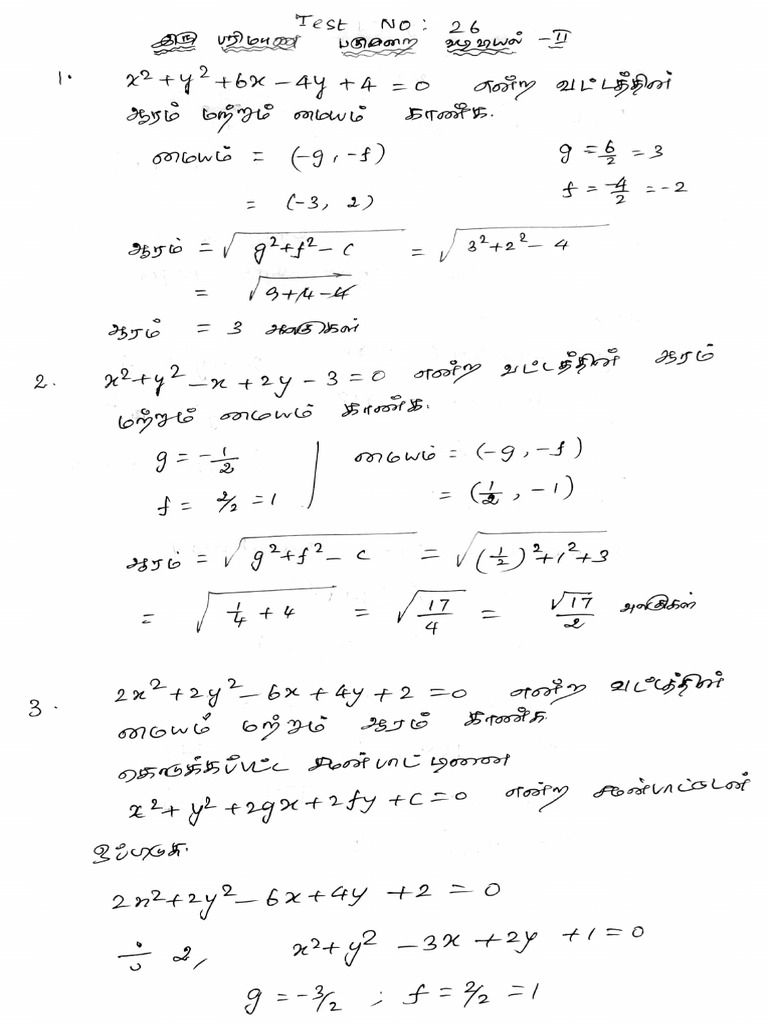 Test No: 26
இரு பரிமாண பகுமுறை வடிவியல் -II
1. x² + y² + 6x - 4y + 4 = 0 என்ற வட்டத்தின்
ஆரம் மற்றும் மையம் காண்க.
மையம் = (-g, -f) g = 6/2 = 3
= (-3, 2) f = -4/2 = -2
ஆரம் = √(g² + f² - c) = √(3² + 2² - 4)
= √(9 + 4 - 4)
ஆரம் = 3 அலகுகள்
2. x² + y² - x + 2y - 3 = 0 என்ற வட்டத்தின் ஆரம்
மற்றும் மையம் காண்க.
g = -1/2 மையம் = (-g, -f)
f = 2/2 = 1 = (1/2, -1)
ஆரம் = √(g² + f² - c) = √((1/2)² + 1² + 3)
= √(1/4 + 4) = √(17/4) = √17/2 அலகுகள்
3. 2x² + 2y² - 6x + 4y + 2 = 0 என்ற வட்டத்தின்
மையம் மற்றும் ஆரம் காண்க
கொடுக்கப்பட்ட சமன்பாட்டினை
x² + y² + 2gx + 2fy + c = 0 என்ற சமன்பாட்டுடன்
ஒப்பிடுக.
2x² + 2y² - 6x + 4y + 2 = 0
÷ 2, x² + y² - 3x + 2y + 1 = 0
g = -3/2 ; f = 2/2 = 1